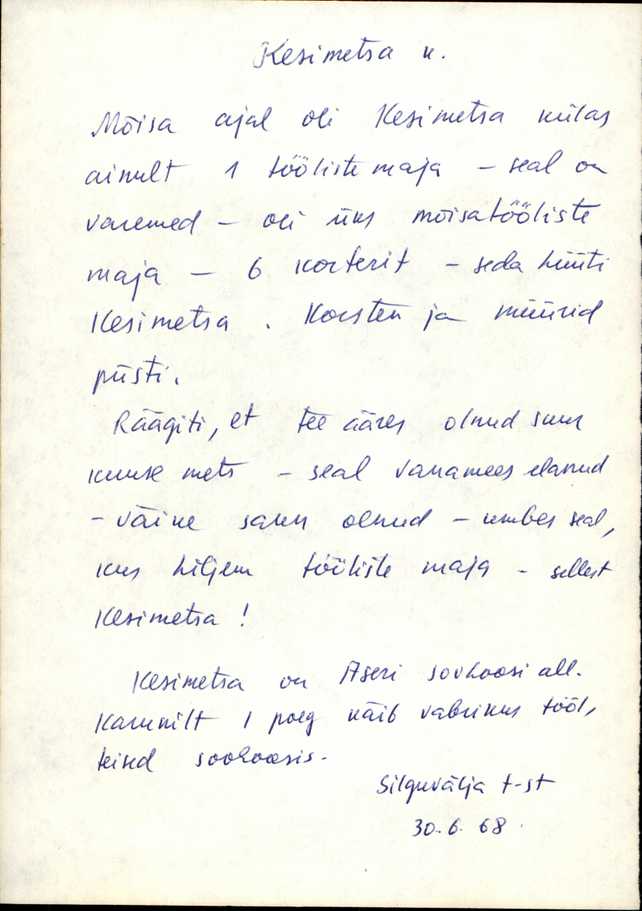 Kesimetsa k.
Mõisa ajal oli Kesimetsa külas
ainult 1 tööliste maja – seal on
varemed – oli üks mõisatööliste
maja – 6 korterit – seda hüüti
Kesimetsa. Korsten ja müürid
püsti.
Räägiti, et tee ääres olnud suur
kuuse mets – seal vanamees elanud
– väike saun olnud – umbes seal,
kus hiljem tööliste maja – sellest
Kesimetsa!
Kesimetsa on Aseri sovhoosi all.
1 poeg käib vabrikus tööl,
teised sovhoosis.
Silguvälja t-st
30.6.68.